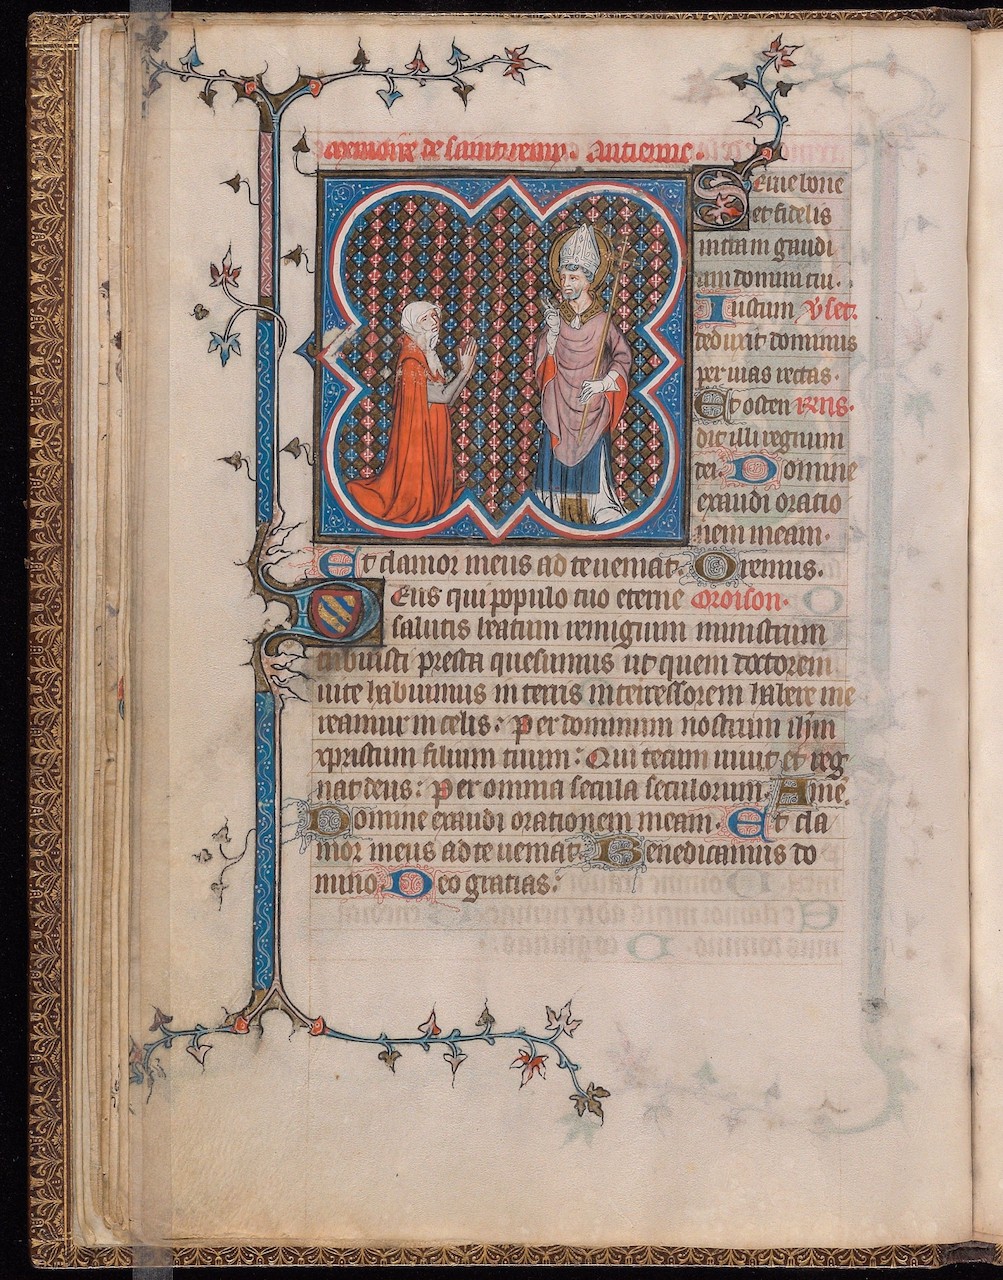 Memoire de saint remy. Antienne.
Serue bone
et fidelis
intra in gaudi
um domini tui.
Iustum v̾set.
deduxit dominus
per uias rectas.
Et osten rens.
dit illi regnum
dei. Domine
exaudi oratio
nem meam.
Et clamor meus ad te ueniat. Oremus.
Deus qui populo tuo eterne Oroison.
salutis beatum remigium ministrum
tribuisti presta quesumus ut quem doctorem
uite habuimus in terris intercessorem habere me
reamur in celis. Per dominum nostrum ihm
xpristum filium tuum. Qui tecum uiuit et reg
nat deus. per omnia secula seculorum. Amē.
Domine exaudi orationem meam. Et cla
mor meus ad te ueniat. Benedicamus do
mino. Deo gratias.